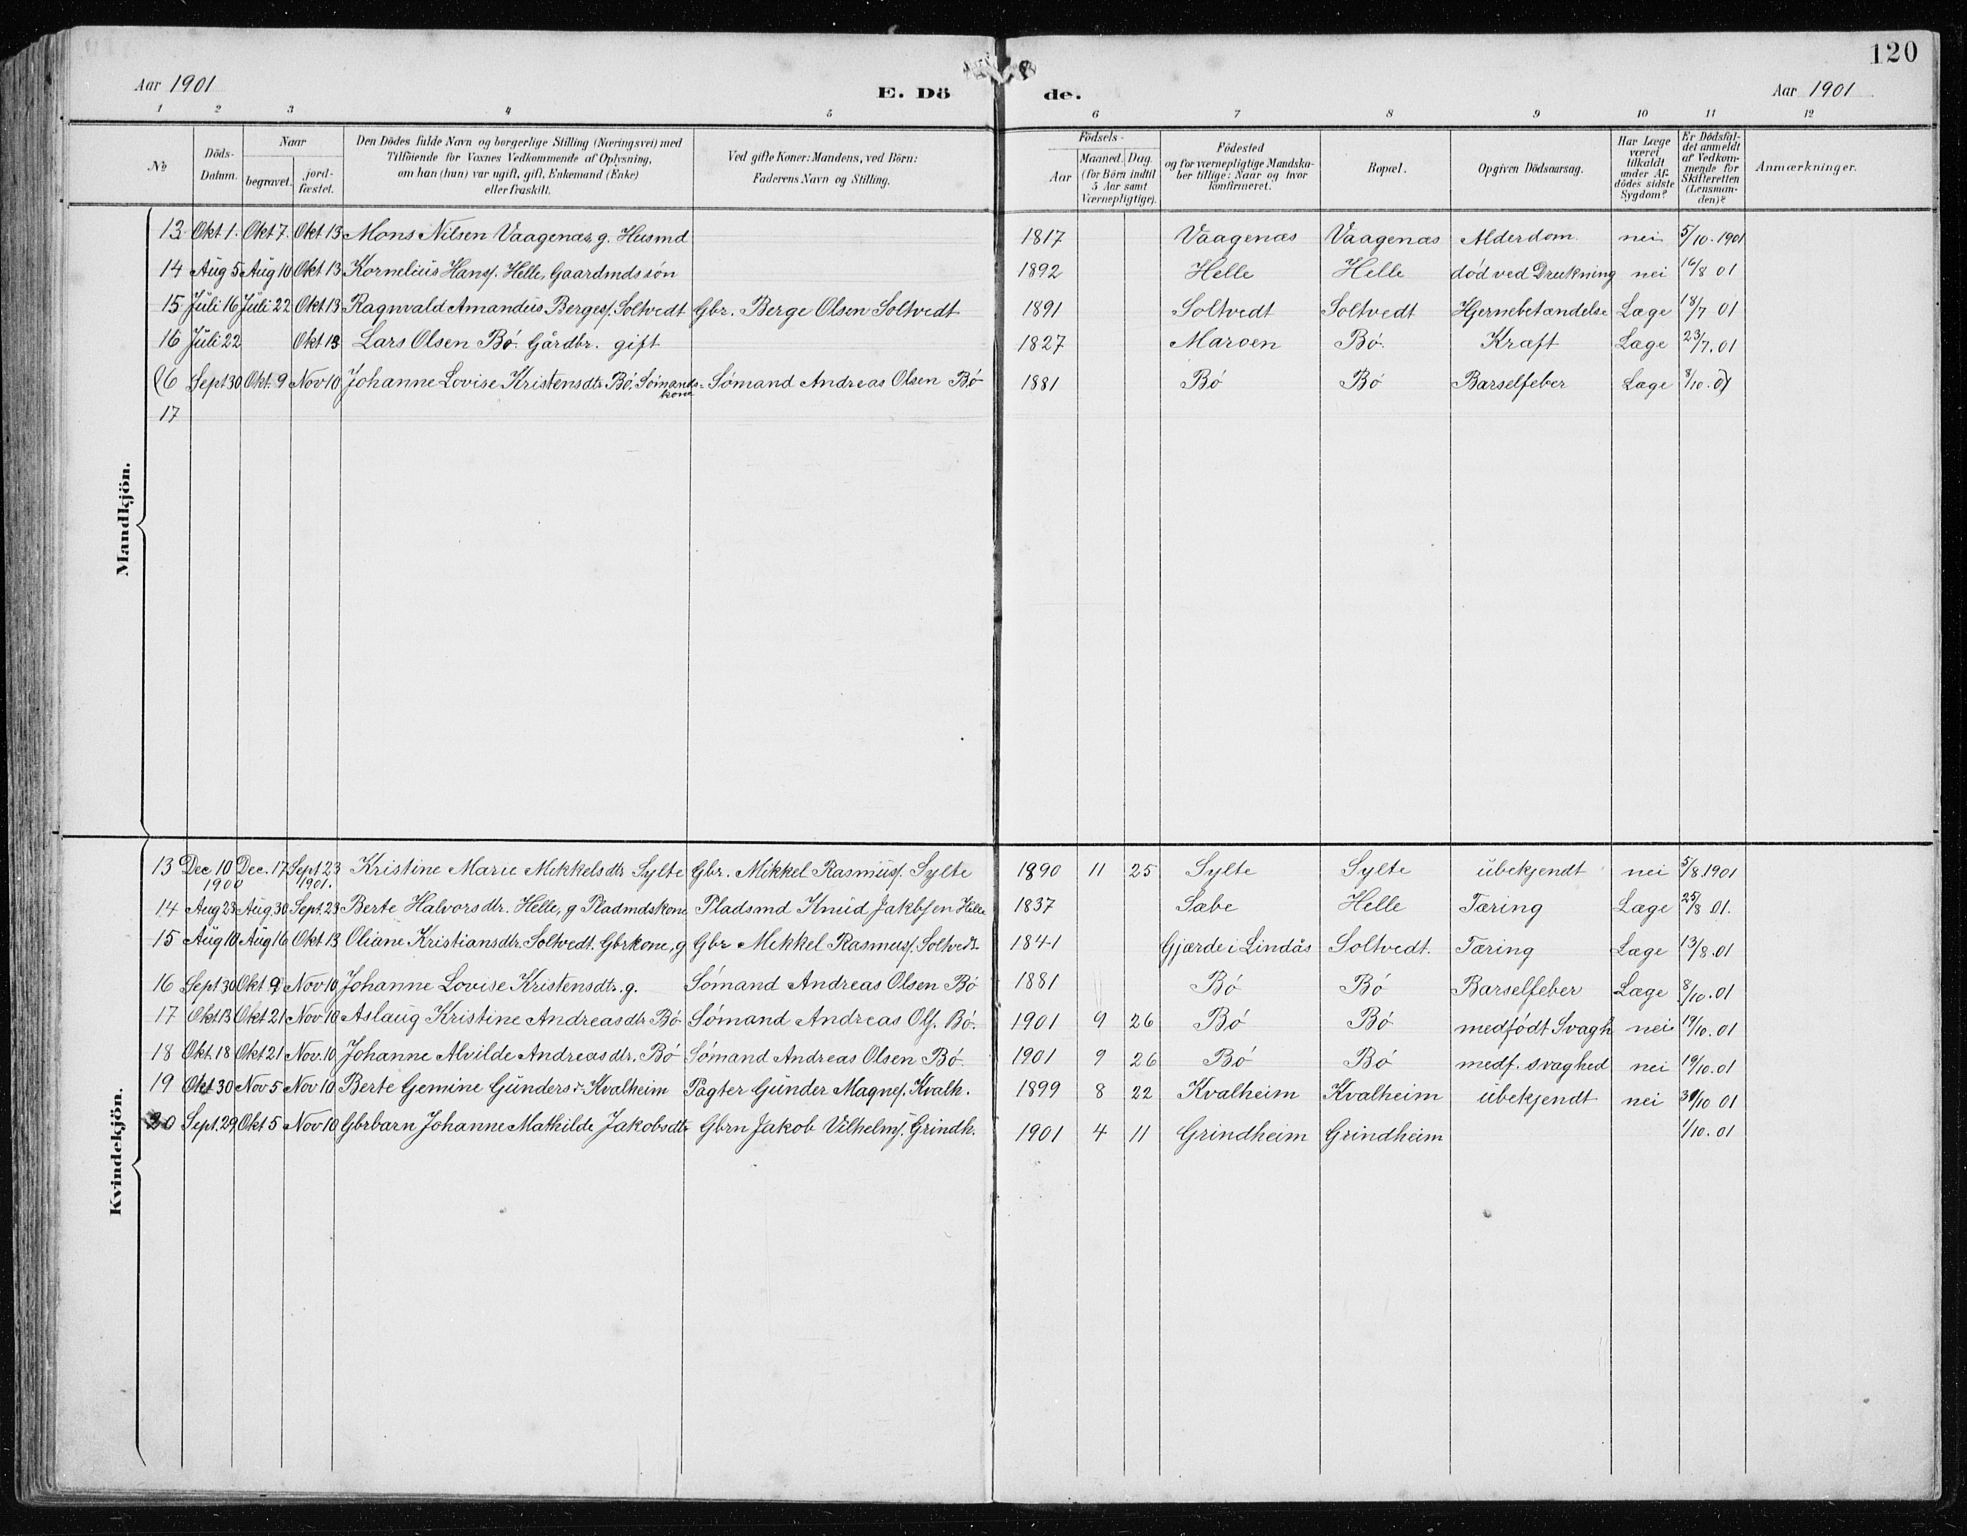 120
Aar 1901 E. Dö de. Aar 1901
1 2 3 4 5 6 7 8 9 10 11 12
№
Döds-Datum.
Naar
begravet.
jord-fæstet.
Den Dödes fulde Navn og borgerlige Stilling (Næringsvei) med
Tilföiende for Voxnes Vedkommende af Oplysning,
om han (hun) var ugift, gift, Enkemand (Enke)
eller fraskilt.
Ved gifte Koner: Mandens, ved Börn:
Faderens Navn og Stilling.
Födsels-
Aar
Maaned. Dag.
(for Börn indtil
5 Aar samt
Værnepligtige).
Födested
og for værnepligtige Mandska-
ber tillige: Naar og hvor
konfirmeret.
Bopæl.
Opgiven Dödsaarsag.
Har Læge
været
tilkaldt
under Af-
dödes sidste
Sygdom?
Er Dödsfal-
det anmeldt
af Vedkom-
mende for
Skifteretten
(Lensman-
den)?
Anmærkninger.
Mandkjön.
13 Okt 1. Okt 7. Okt 13 Mons Nilsen Vaagenæs, g. Husmd 1817 Vaagenæs Vaagenæs Alderdom nei 5/10. 1901
14 Aug 5 Aug 10 Okt 13 Kornelius Hansf. Helle, Gaardmdssön 1892 Helle Helle død ved Drukning nei 16/8 01
15 Juli 16 Juli 22 Okt 13 Ragnvald Amandus Bergesf. Soltvedt Gbr. Berge Olsen Soltvedt 1891 Soltvedt Soltvedt Hjernebetændelse Læge 18/7 01
16 Juli 22 Okt 13 Lars Olsen Bø. Gårdbr. gift 1827 Maroen Bø. Kræft Læge 23/7. 01
(16 Sept 30 Okt. 9 Nov 10 Johanne Lovise Kristensdtr Bø. Sømands-kone Sømand Andreas Olsen Bø 1881 Bø Bø Barselfeber Læge 8/10. 01)
17
Kvindekjön.
13 Dec 10 1900 Dec. 17 Sept 23 1901. Kristine Marie Mikkelsdtr Sylte Gbr. Mikkel Rasmusf. Sylte 1890 11 25 Sylte Sylte ubekjendt nei 5/8. 1901
14 Aug 23 Aug 30 Sept. 23 Berte Halvorsdtr. Helle, g Pladmdskone Pladsmd Knud Jakobsen Helle 1837 Sabe Helle Tæring Læge 25/8 01.
15 Aug 10 Aug 16 Okt 13 Oliane Kristiansdtr. Soltvedt. Gbrkone, g Gbr Mikkel Rasmusf. Soltvedt 1841 Gjærde i Lindås Soltvedt. Tæring Læge 13/8. 01
16 Sept 30 Okt 9 Nov 10 Johanne Lovise Kristensdtr. g. Sømand Andreas Olsen Bø 1881 Bø Bø Barselfeber Læge 8/10. 01
17 Okt 13 Okt 21 Nov. 10 Aslaug Kristine Andreasdtr Bø Sømand Andreas Olf. Bø. 1901 9 26 Bø Bø medfödt Svagh nei 19/10. 01
18 Okt. 18 Okt 21 Nov. 10 Johanne Alvilde Andreasdtr. Bø Sømand Andreas Olsen Bø. 1901 9 26 Bø Bø medf. svaghed nei 19/10. 01
19 Okt 30 Nov 5 Nov 10 Berte Gemine Gundersdr Kvalheim Pagter Gunder Magnesf. Kvalh. 1899 8 22 Kvalheim Kvalheim ubekjendt nei 30/10 01
20 Sept. 29 Okt 5 Nov 10 Gbrbarn Johanne Mathilde Jakobsdtr Gbrn Jakob Vilhelmsf. Grindh. 1901 4 11 Grindheim Grindheim 1/10. 01